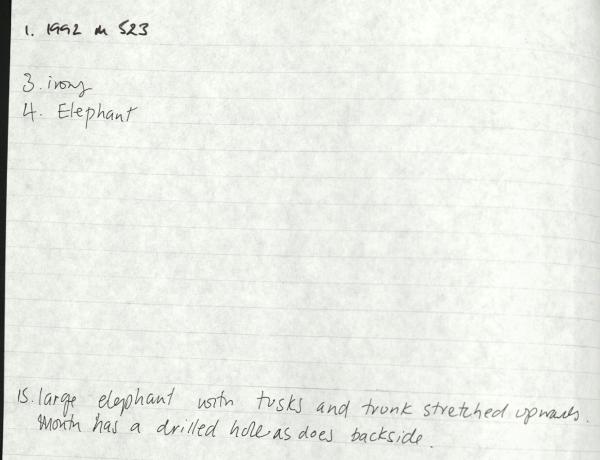 1. 1992 m 523
3. ivory
4. Elephant
15. large elephant with tusks and trunk stretched upwards.
Mouth has a drilled hole as does backside.